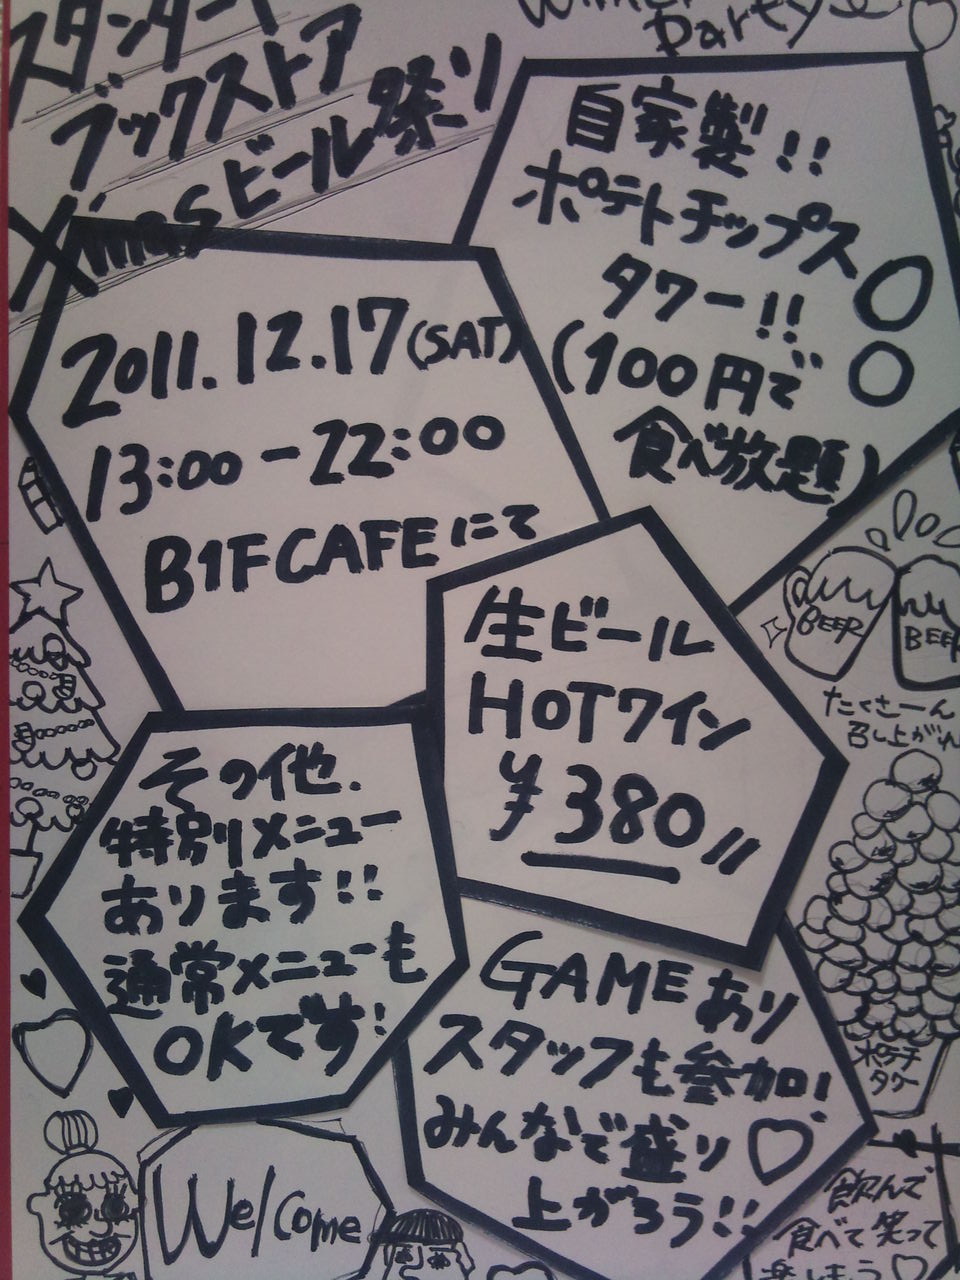 スタンダード
ブックストア
Xmasビール祭り
Winter
Party
自家製!!
ポテトチップス
タワー!!
(100円で
食べ放題)
2011.12.17(SAT)
13:00-22:00
B1F CAFEにて
生ビール
HOTワイン
¥380
BEER
BEER
たくさーん
召し上がれ
その他.
特別メニュー
あります!!
通常メニューも
OKです!
GAMEあり
スタッフも参加!
みんなで盛り
上がろう!!
ポテチ
タワー
Welcome
飲んで
食べて笑って
楽しもう